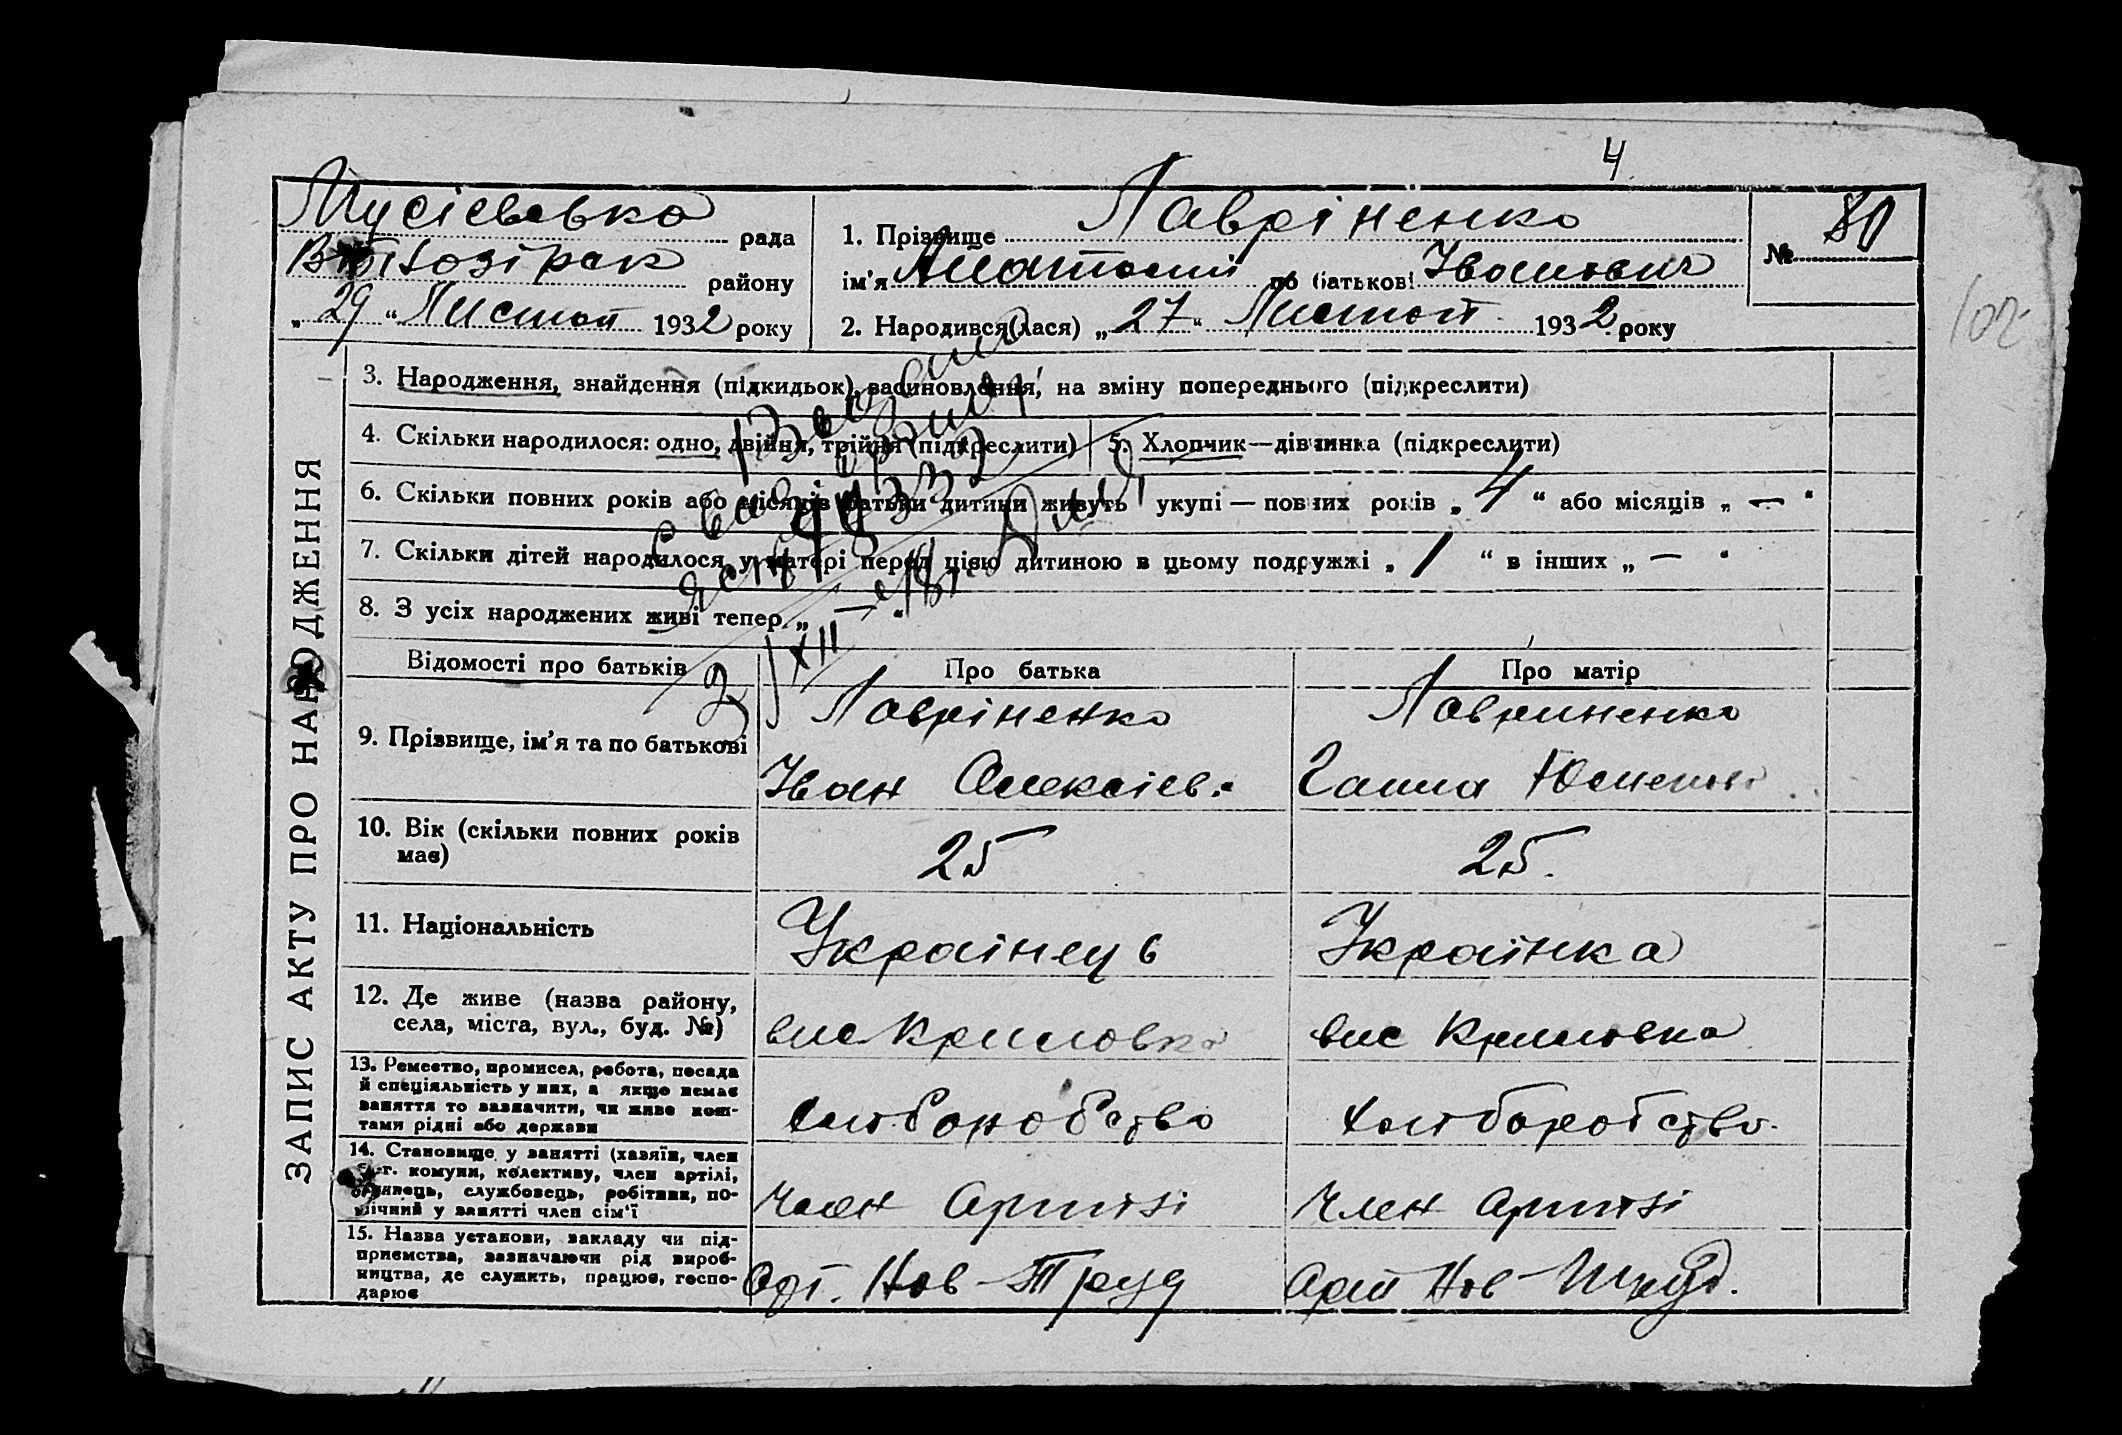 4
Мусієвська рада
району
„29“ Листоп 1932 року
1. Прізвище Лавріненко
ім'я Анатолий по батькові Іванович
№ 80
2. Народився(лася) „27“ Листоп 1932 року
102
ЗАПИС АКТУ ПРО НАРОДЖЕННЯ
3. Народження, знайдення (підкидьок), засиновлення, на зміну попереднього (підкреслити)
4. Скільки народилося: одно, двійня, трійня (підкреслити)
5. Хлопчик—дівчинка (підкреслити)
6. Скільки повних років або місяців батьки дитини живуть укупі — повних років „4“ або місяців „—“
7. Скільки дітей народилося у матері перед цією дитиною в цьому подружжі „1“ в інших „—“
8. З усіх народжених живі тепер „—“
Відомості про батьків
Про батька
Про матір
9. Прізвище, ім'я та по батькові
Лавріненко
Іван Олексієв.
Лавриненко
Ганна
10. Вік (скільки повних років має)
25
25.
11. Національність
Українець
Українка
12. Де живе (назва району,
села, міста, вул., буд. №)
вис Криловка
вис Криловка
13. Ремество, промисел, робота, посада
й спеціяльність у них, а якщо немає
заняття то зазначити, чи живе кош-
тами рідні або держави
хліборобство
хліборобство.
14. Становище у занятті (хазяїн, член
с.-г. комуни, колективу, член артілі,
службовець, робітник, по-
мічний у занятті член сім'ї
член артілі
член артілі
15. Назва установи, закладу чи під-
приємства, зазначаючи рід вироб-
ництва, де служить, працює, госпо-
дарює
Арт. Нов-Труд
Арт Нов-Труд.
1932